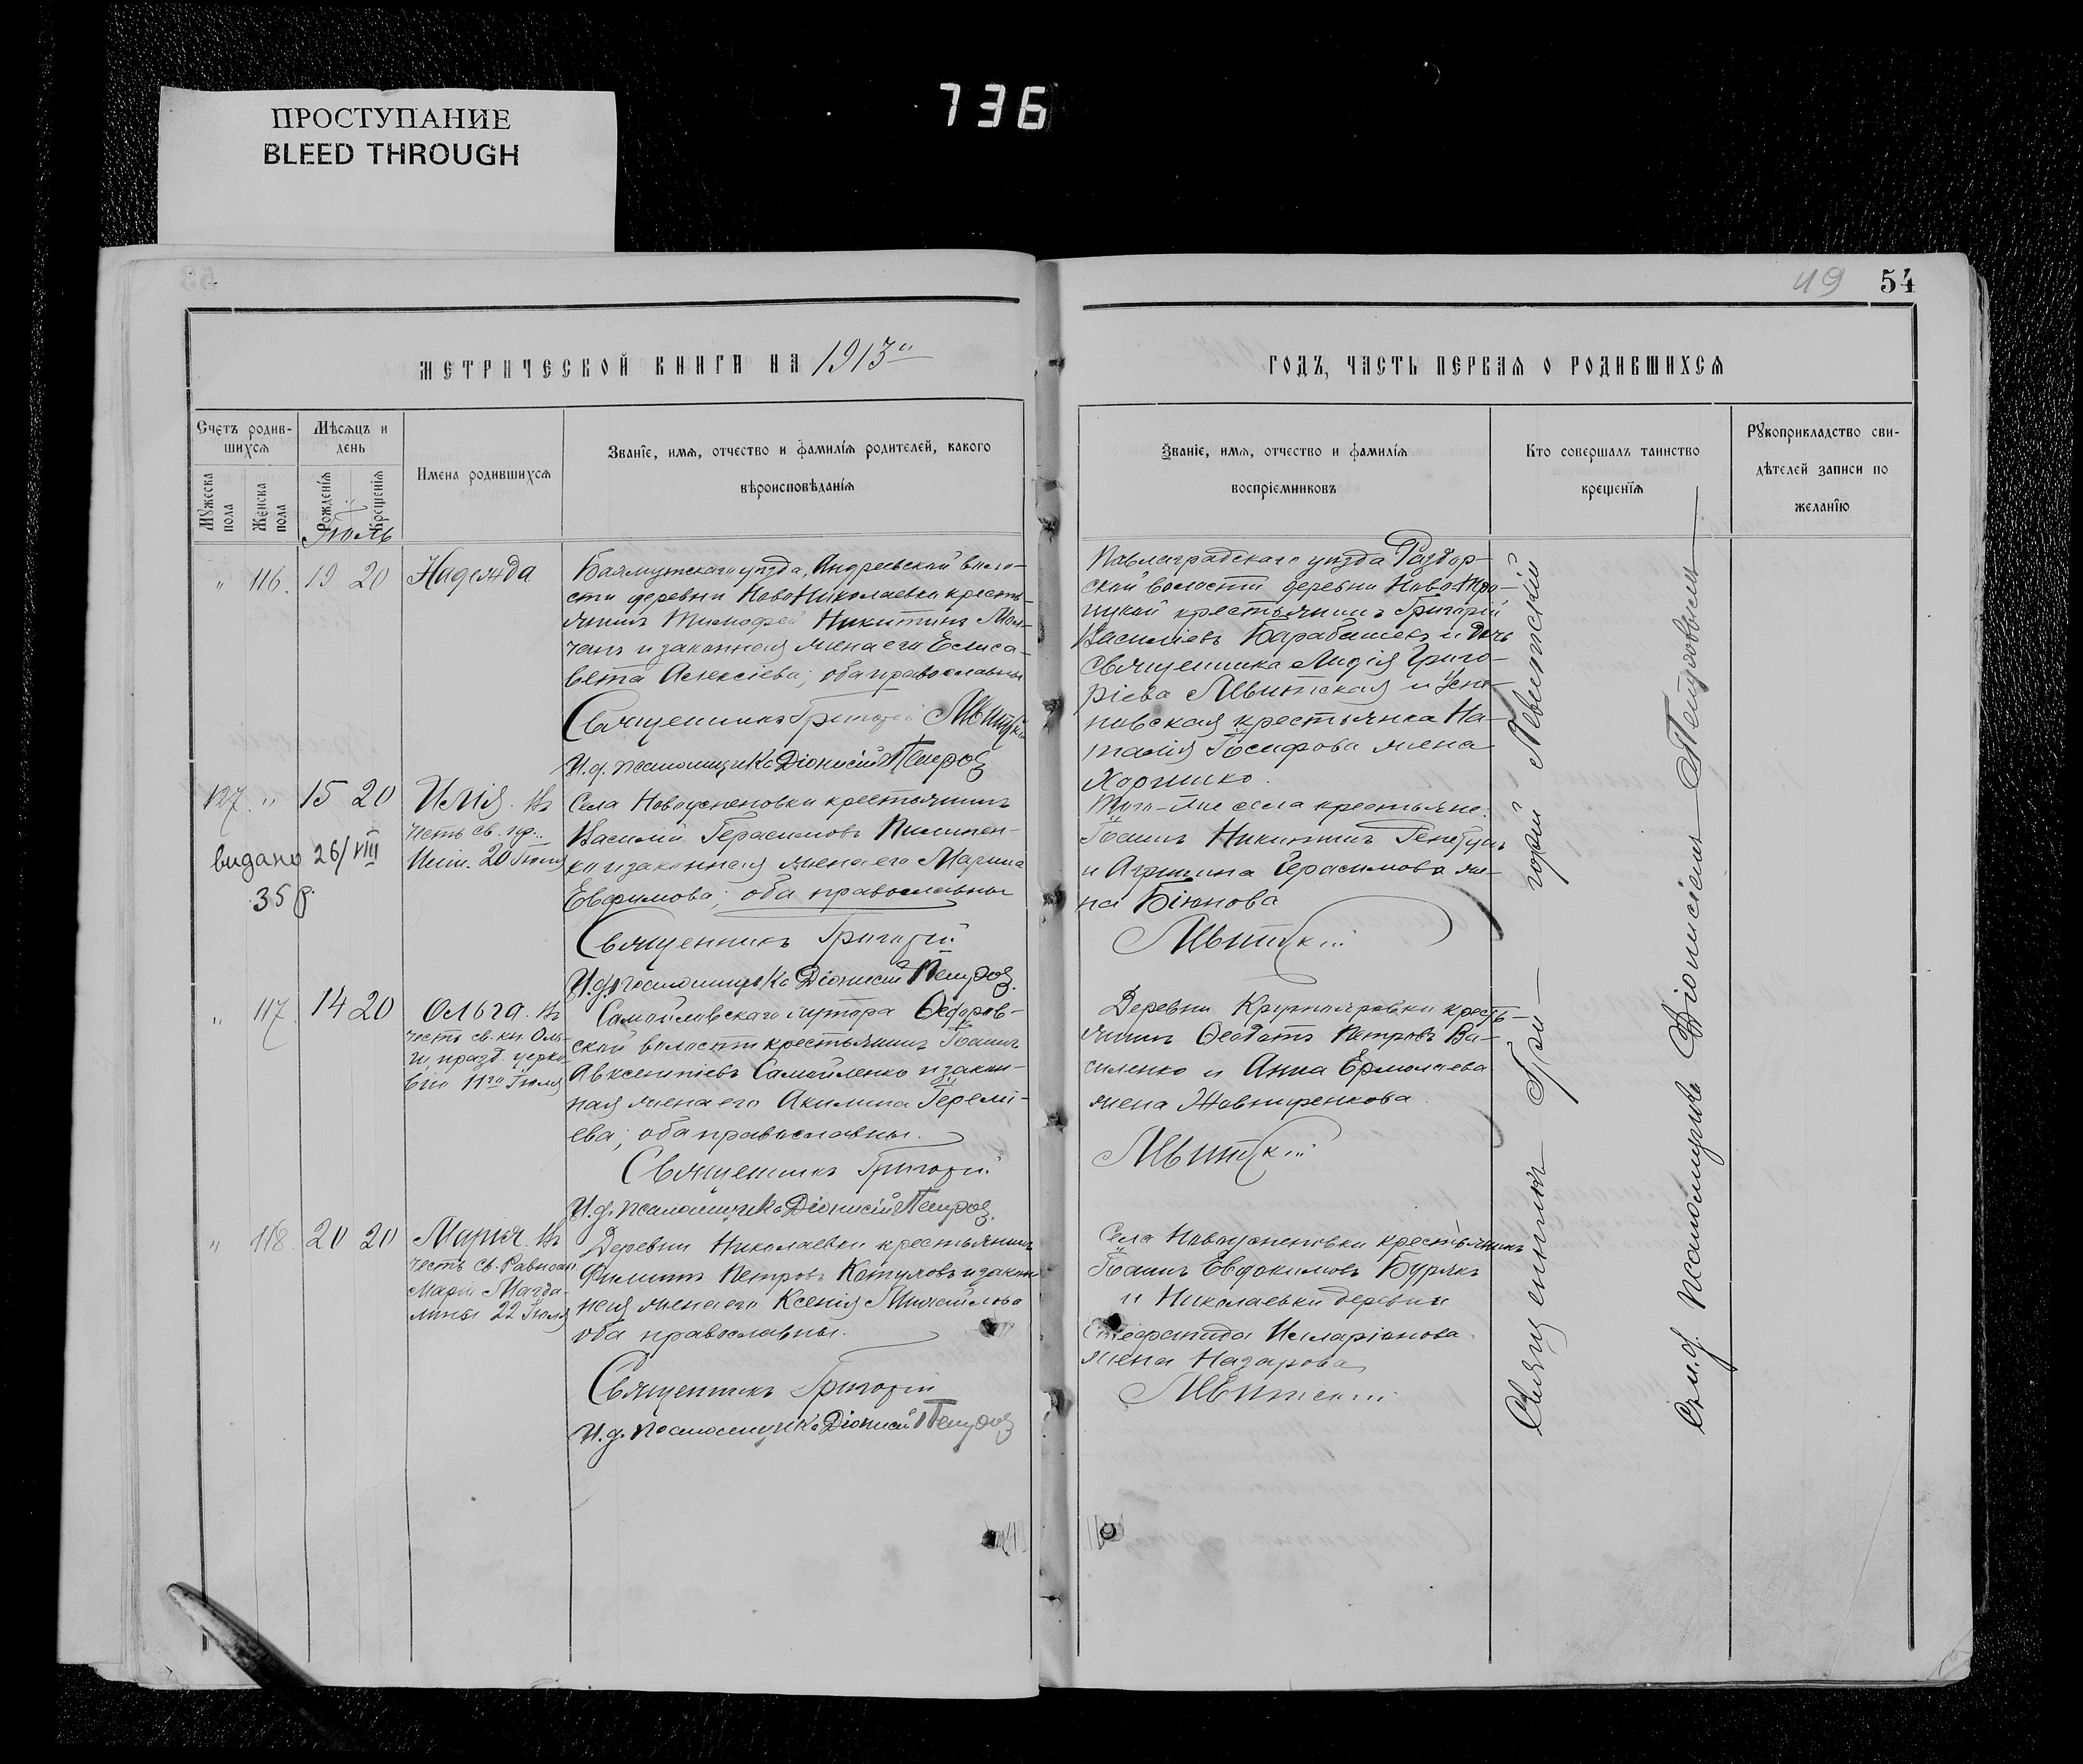 736
ПРОСТУПАНИЕ
BLEED THROUGH
49 54
МЕТРИЧЕСКОЙ КНИГИ НА 1913
ГОДЪ, ЧАСТЬ ПЕРВАЯ О РОДИВШИХСЯ
Счетъ родив-
шихся
Мужеска
пола
Женска
пола
Мѣсяцъ и
день
Рожденія
Крещенія
Имена родившихся
Званіе, имя, отчество и фамилія родителей, какого
вѣроисповѣданія
Званіе, имя, отчество и фамилія
воспріемниковъ
Кто совершалъ таинство
крещенія
Рукоприкладство сви-
дѣтелей записи по
желанію
Іюль
" 116. 19 20 Надежда
Бахмутскаго уѣзда, Андреевской воло-
сти деревни НовоНиколаевки кресть-
янинъ Тимофей Никитинъ Мол-
чанъ и законная жена его Елиса-
вета Алексіева; оба православны
Священникъ Григорій Левитскій
И.д. псаломщика Діонисій Петровъ
Павлоградскаго уѣзда Раздор-
ской волости деревни Ново-Тро-
ицкой крестьянинъ Григорій
Василіевъ Барабашъ и дочь
священника Лидія Григо-
ріева Левитская и Успе-
новская крестьянка На-
талія Іосифова жена
127. " 15 20 Илія. Въ
честь св. пр.
Иліи. 20 Іюля
видано 26/VIII
35 р.
Села Новоуспеновки крестьянинъ
Василій Герасимовъ Пилипен-
ко и законная жена его Марина
Евфимова; оба православны
Священникъ Григорій
И.д. псаломщика Діонисій Петровъ.
Того-же села крестьяне:
Іоаннъ Никитинъ
и Агрипина Герасимова же-
на Біюнова
Левитскій
" 117 14 20 Ольга. Въ
честь св. кн. Оль-
ги, празд. церко-
вію 11го Іюля
Самойловскаго хутора Ѳедоров-
ской волости крестьянинъ Іоаннъ
Авксентіевъ Самойленко и закон-
ная жена его Акилина Іеремі-
ева; оба православны.
Священникъ Григорій
И.д. псаломщика Діонисій Петровъ.
Деревни Крутояровки кресть-
янинъ Ѳеодотъ Петровъ Ва-
силенко и Анна Ермолаева
жена Жовниренкова
Левитскій
" 118. 20 20 Марія. Въ
честь св. Равноап.
Маріи Магда-
лины 22 Іюля
Деревни Николаевки крестьянинъ
Филиппъ Петровъ и закон-
ная жена его Ксенія Михайлова
оба православны.
Священникъ Григорій
И.д. псаломщика Діонисій Петровъ
Села Новоуспеновки крестьянинъ
Іоаннъ Евдокимовъ Бурякъ
и Николаевки деревни
Илларіонова
жена Назарова
Левитскій
Священникъ Гри-
горій Левитскій
Съ и.д. псаломщика Діонисіемъ Петровымъ